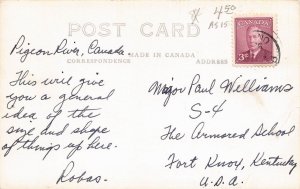 POST CARD
MADE IN CANADA
CORRESPONDENCE
ADDRESS
x 4.50
AS 15
CANADA
3
Pigeon River, Canada.
This will give
you a general
idea of the
size and shape
of things up here.
Robas.
Major Paul Williams
S-4
The Armored School
Fort Knox, Kentucky
U.S.A.